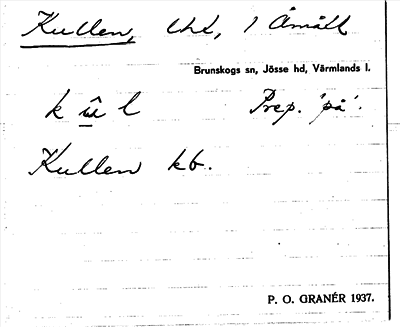 Kullen, lht, 1 Åmått
Brunskogs sn, Jösse hd, Värmlands l.
k l Prep. 'på'.
Kullen kb.
P. O. GRANÉR 1937.